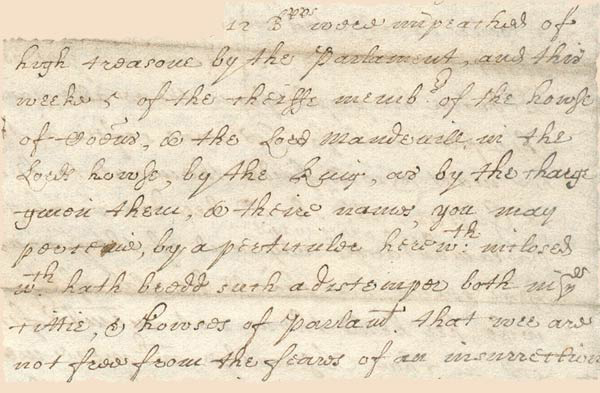 12 Bpps were impeached of
high treasone by the Parlament, and this
weeke 5 of the cheiffe membrs of the howse
of Comons, & the Lord Mandevill in the
Lords howse, by the King, as by the charge
given them, & theire names, you may
perceive, by a perticuler herewth inclosed
wth hath bredd such a distemper both in ye
cittie, & howses of Parlamt. that wee are
not free from the fears of an insurrection